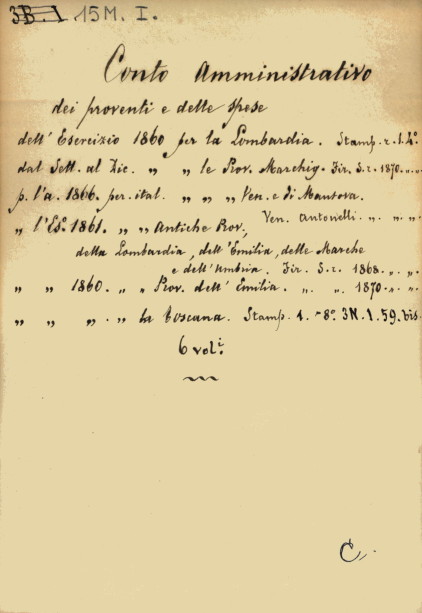 3B.1. 15M. I.
Conto Amministrativo
dei proventi e delle spese
dell' Esercizio 1860 per la Lombardia. Stamp. r. 1. 4°.
dal Sett. al Dic. „ „ le Prov. Marchig. Fir. S. r. 1870. „. „.
p. l'a. 1866. per. ital. „ „ „ Ven. e di Mantova.
Ven. Antonelli. „. „. „.
„ l'Es°. 1861. „ „ Antiche Prov.,
della Lombardia, dell' Emilia, delle Marche
e dell' Umbria. Fir. S. r. 1868. „. „.
„ „ 1860. „ „ Prov. dell' Emilia. „. „. 1870. „. „.
„ „ „. „ la Toscana. Stamp. 1. 8°. 3N. 1. 59. bis.
6 vol.i
C.